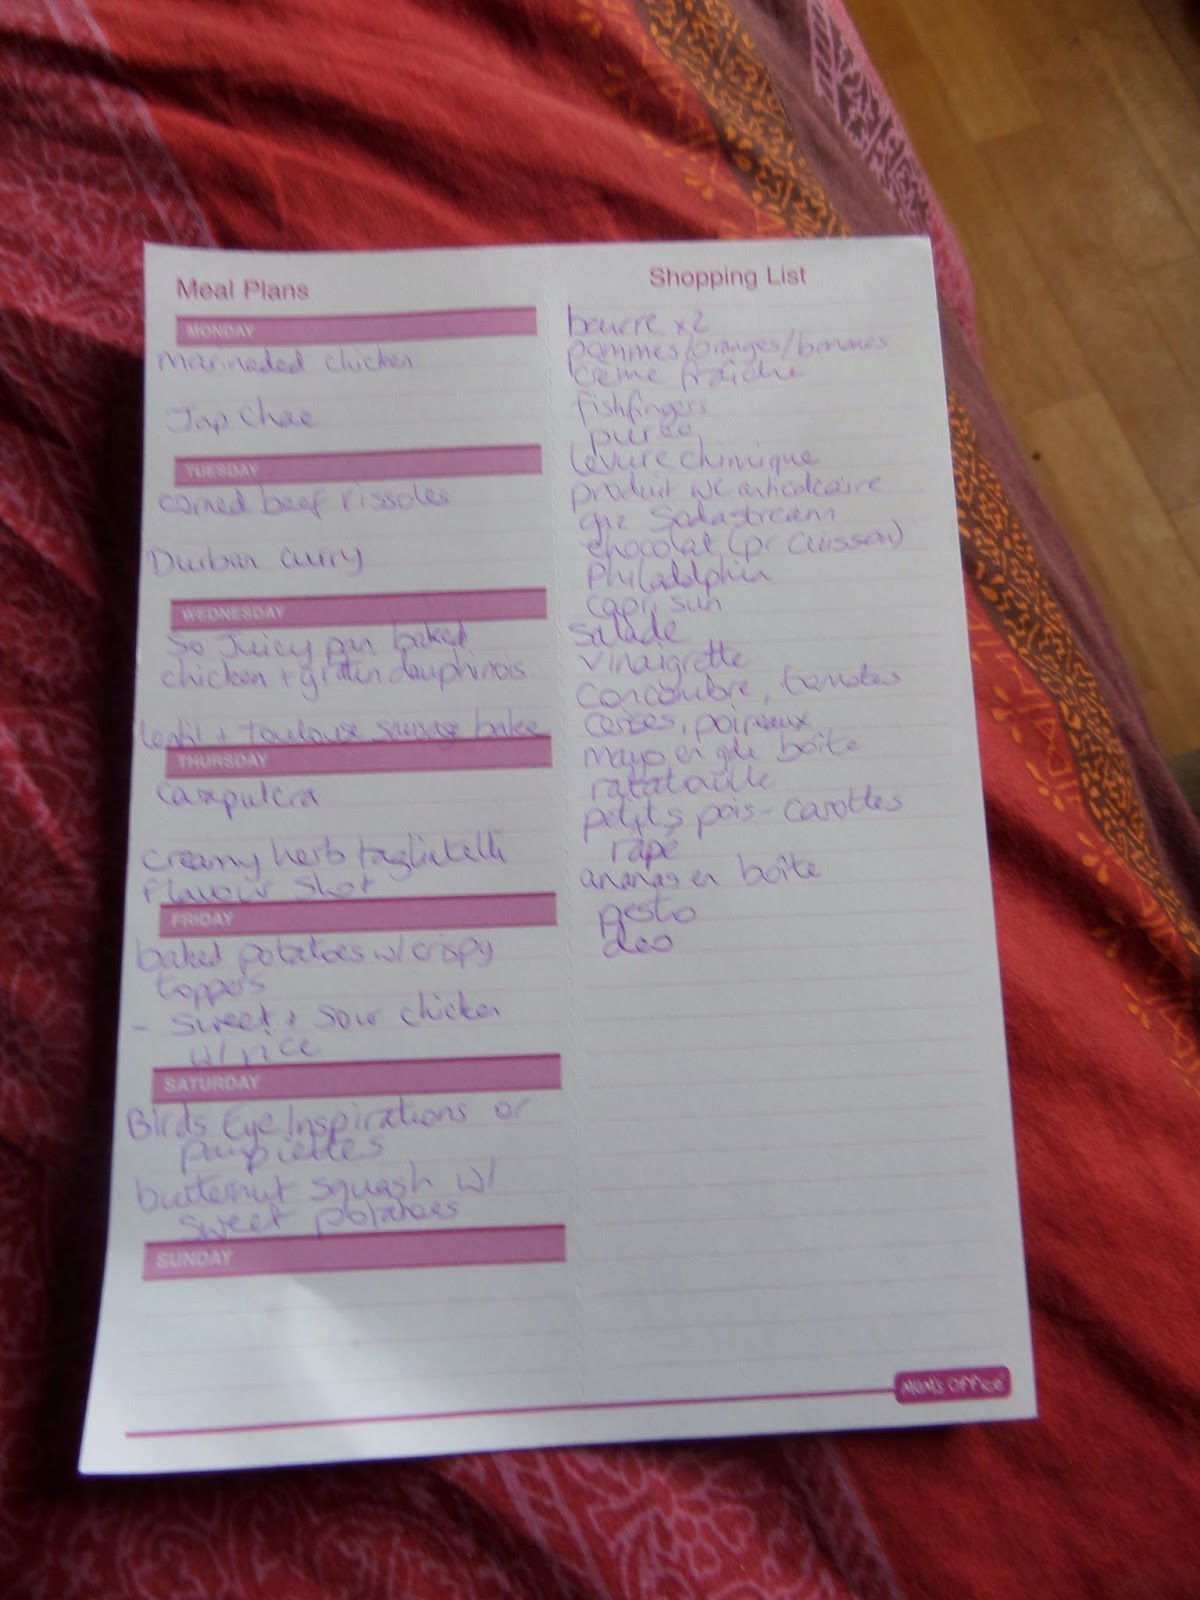 Meal Plans
MONDAY
marinaded chicken
Jap Chae
TUESDAY
corned beef rissoles
Durban curry
WEDNESDAY
So Juicy pan baked
chicken + gratin dauphinois
lentil + Toulouse sausage bake
THURSDAY
Carapulcra
creamy herb tagliatelli
flavour shot
FRIDAY
baked potatoes w/ crispy
toppers
- sweet + sour chicken
w/ rice
SATURDAY
Birds Eye Inspirations or
paupiettes
butternut squash w/
sweet potatoes
SUNDAY
Shopping List
beurre x2
pommes/oranges/bananes
crème fraîche
fishfingers
purée
levure chimique
produit wc anticalcaire
gaz Sodastream
chocolat (pr cuisson)
Philadelphia
capri sun
salade
vinaigrette
concombre, tomates
poireaux
mayo en gde boîte
ratatouille
petits pois-carottes
rapé
ananas en boîte
pesto
deo
MOM'S OFFICE